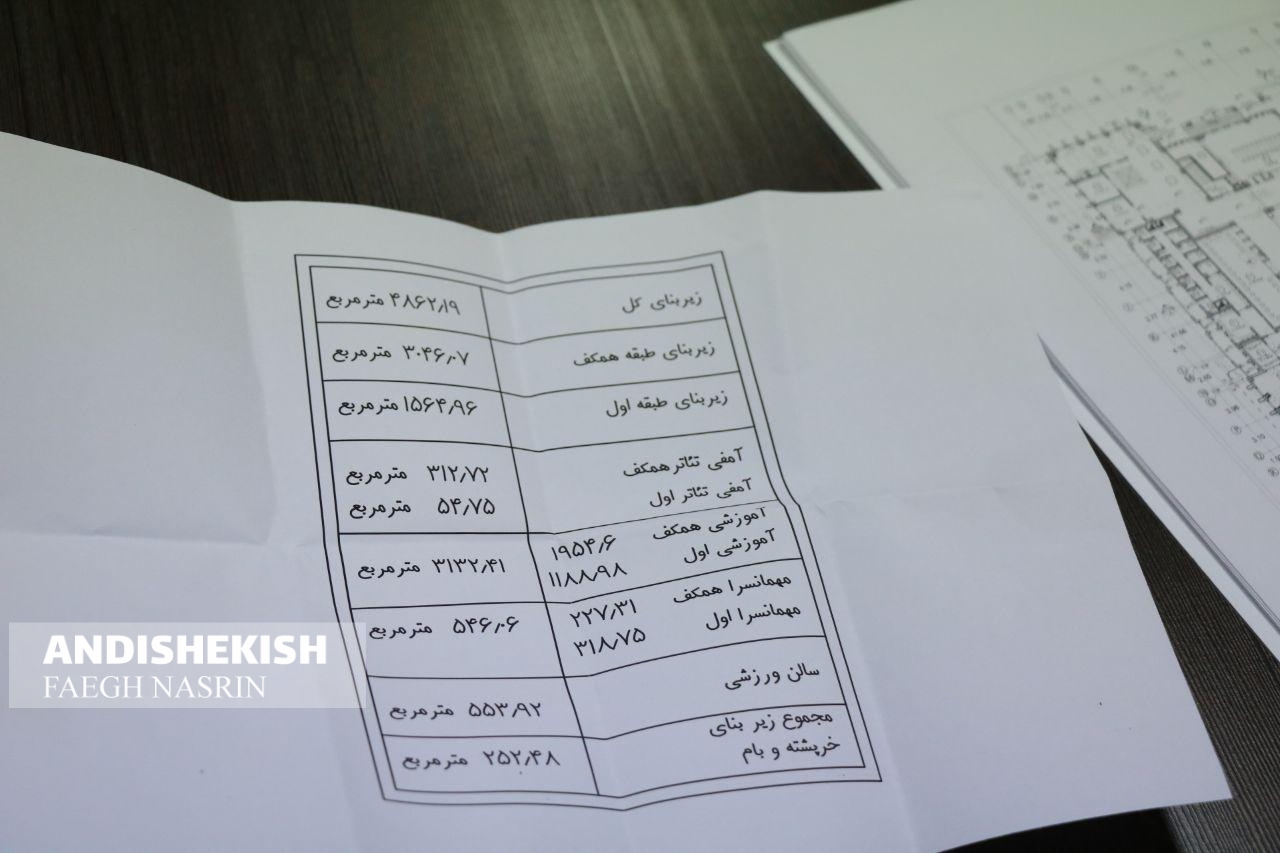 زیربنای کل ۴۸۶۲٫۱۹ مترمربع
زیربنای طبقه همکف ۳۰۴۶٫۰۷ مترمربع
زیربنای طبقه اول ۱۵۶۴٫۹۶ مترمربع
آمفی تئاتر همکف ۳۱۲٫۷۲ مترمربع
آمفی تئاتر اول ۵۴٫۷۵ مترمربع
آموزشی همکف ۱۹۵۴٫۶
آموزشی اول ۱۱۸۸٫۹۸
۳۱۳۲٫۴۱ مترمربع
مهمانسرا همکف ۲۲۷٫۳۱
مهمانسرا اول ۳۱۸٫۷۵
۵۴۶٫۰۶ مترمربع
سالن ورزشی ۵۵۳٫۹۲ مترمربع
مجموع زیر بنای
خرپشته و بام ۲۵۲٫۴۸ مترمربع
ANDISHEKISH
FAEGH NASRIN